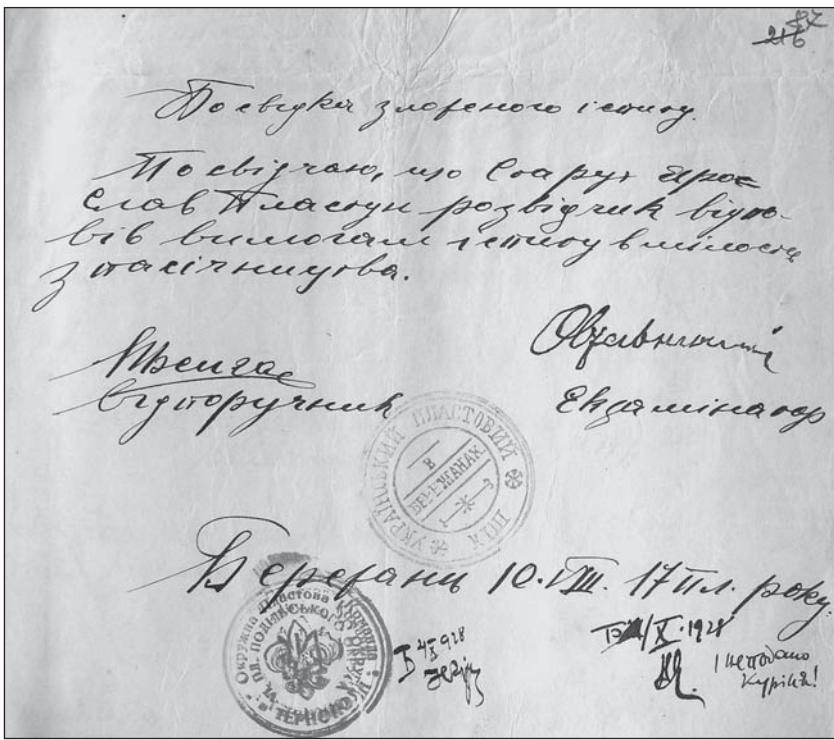 216
Посвідка зложеного іспиту.
Посвідчаю, що Старух Яро=
слав Пластун розвідчик відпо-
вів вимогам іспиту вмілости
з пасічництва.
Відпоручник Екзамінатор
УКРАЇНСЬКИЙ ПЛАСТОВИЙ
В
БЕРЕЖАНАХ
Бережани 10.VIII. 17 пл. року.
Окружна Пластова Команда
ПОДІЛЬСЬКОГО ОКРУГА
X.1928
і неподано
Куріня!